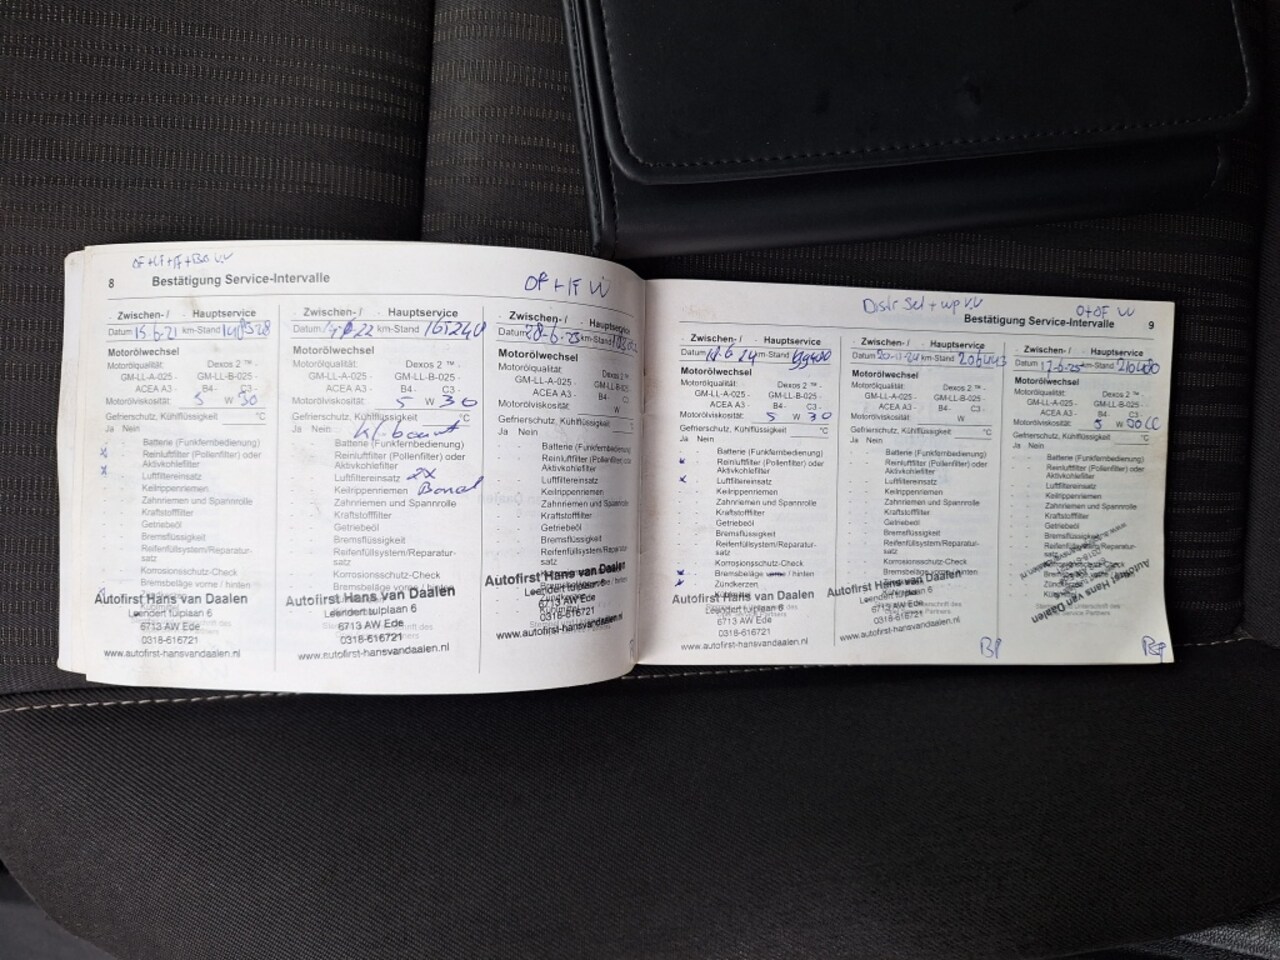 8 Bestätigung Service-Intervalle
OF+IF W
Zwischen-/ Hauptservice
Datum 15-6-21 km-Stand
Motorölwechsel
Motorölqualität: Dexos 2 ™ -
GM-LL-A-025 - GM-LL-B-025 -
ACEA A3 - B4 - C3 -
Motorölviskosität: 5 W 30
Gefrierschutz, Kühlflüssigkeit °C
Ja Nein
Batterie (Funkfernbedienung)
Reinluftfilter (Pollenfilter) oder
Aktivkohlefilter
Luftfiltereinsatz
Keilrippenriemen
Zahnriemen und Spannrolle
Kraftstofffilter
Getriebeöl
Bremsflüssigkeit
Reifenfüllsystem/Reparatur-
satz
Korrosionsschutz-Check
Bremsbeläge vorne / hinten
Autofirst Hans van Daalen
Leendert tulplaan 6
6713 AW Ede
0318-616721
www.autofirst-hansvandaalen.nl
Zwischen-/ Hauptservice
Datum km-Stand 161240
Motorölwechsel
Motorölqualität: Dexos 2 ™ -
GM-LL-A-025 - GM-LL-B-025 -
ACEA A3 - B4 - C3 -
Motorölviskosität: 5 W 30
Gefrierschutz, Kühlflüssigkeit °C
Ja Nein
Batterie (Funkfernbedienung)
Reinluftfilter (Pollenfilter) oder
Aktivkohlefilter
Luftfiltereinsatz 2x
Keilrippenriemen
Zahnriemen und Spannrolle
Kraftstofffilter
Getriebeöl
Bremsflüssigkeit
Reifenfüllsystem/Reparatur-
satz
Korrosionsschutz-Check
Bremsbeläge vorne / hinten
Autofirst Hans van Daalen
Leendert tulplaan 6
6713 AW Ede
0318-616721
www.autofirst-hansvandaalen.nl
Zwischen-/ Hauptservice
Datum 28-6-23 km-Stand
Motorölwechsel
Motorölqualität: Dexos 2 ™ -
GM-LL-A-025 - GM-LL-B-025 -
ACEA A3 - B4 - C3 -
Motorölviskosität: W
Gefrierschutz, Kühlflüssigkeit °C
Ja Nein
Batterie (Funkfernbedienung)
Reinluftfilter (Pollenfilter) oder
Aktivkohlefilter
Luftfiltereinsatz
Keilrippenriemen
Zahnriemen und Spannrolle
Kraftstofffilter
Getriebeöl
Bremsflüssigkeit
Reifenfüllsystem/Reparatur-
satz
Autofirst Hans van Daalen
Leendert tulplaan 6
6713 AW Ede
0318-616721
www.autofirst-hansvandaalen.nl
Distr Sel + wp V.V
O+OF W
Bestätigung Service-Intervalle 9
Zwischen-/ Hauptservice
Datum 6 24 km-Stand
Motorölwechsel
Motorölqualität: Dexos 2 ™ -
GM-LL-A-025 - GM-LL-B-025 -
ACEA A3 - B4 - C3 -
Motorölviskosität: 5 W 30
Gefrierschutz, Kühlflüssigkeit °C
Ja Nein
Batterie (Funkfernbedienung)
Reinluftfilter (Pollenfilter) oder
Aktivkohlefilter
Luftfiltereinsatz
Keilrippenriemen
Zahnriemen und Spannrolle
Kraftstofffilter
Getriebeöl
Bremsflüssigkeit
Reifenfüllsystem/Reparatur-
satz
Korrosionsschutz-Check
Bremsbeläge vorne / hinten
Zündkerzen
Autofirst Hans van Daalen
Leendert tulplaan 6
6713 AW Ede
0318-616721
www.autofirst-hansvandaalen.nl
Zwischen-/ Hauptservice
Datum km-Stand 206443
Motorölwechsel
Motorölqualität: Dexos 2 ™ -
GM-LL-A-025 - GM-LL-B-025 -
ACEA A3 - B4 - C3 -
Motorölviskosität: W
Gefrierschutz, Kühlflüssigkeit °C
Ja Nein
Batterie (Funkfernbedienung)
Reinluftfilter (Pollenfilter) oder
Aktivkohlefilter
Luftfiltereinsatz
Keilrippenriemen
Zahnriemen und Spannrolle
Kraftstofffilter
Getriebeöl
Bremsflüssigkeit
Reifenfüllsystem/Reparatur-
satz
Korrosionsschutz-Check
Autofirst Hans van Daalen
Leendert tulplaan 6
6713 AW Ede
0318-616721
www.autofirst-hansvandaalen.nl
BP
Zwischen-/ Hauptservice
Datum 17-6-25 km-Stand 210480
Motorölwechsel
Motorölqualität: Dexos 2 ™ -
GM-LL-A-025 - GM-LL-B-025 -
ACEA A3 - B4 - C3 -
Motorölviskosität: 5 W
Gefrierschutz, Kühlflüssigkeit °C
Ja Nein
Batterie (Funkfernbedienung)
Reinluftfilter (Pollenfilter) oder
Aktivkohlefilter
Luftfiltereinsatz
Keilrippenriemen
Zahnriemen und Spannrolle
Kraftstofffilter
Getriebeöl
Bremsflüssigkeit
Korrosionsschutz-Check
Bremsbeläge vorne / hinten
Autofirst Hans van Daalen
BP